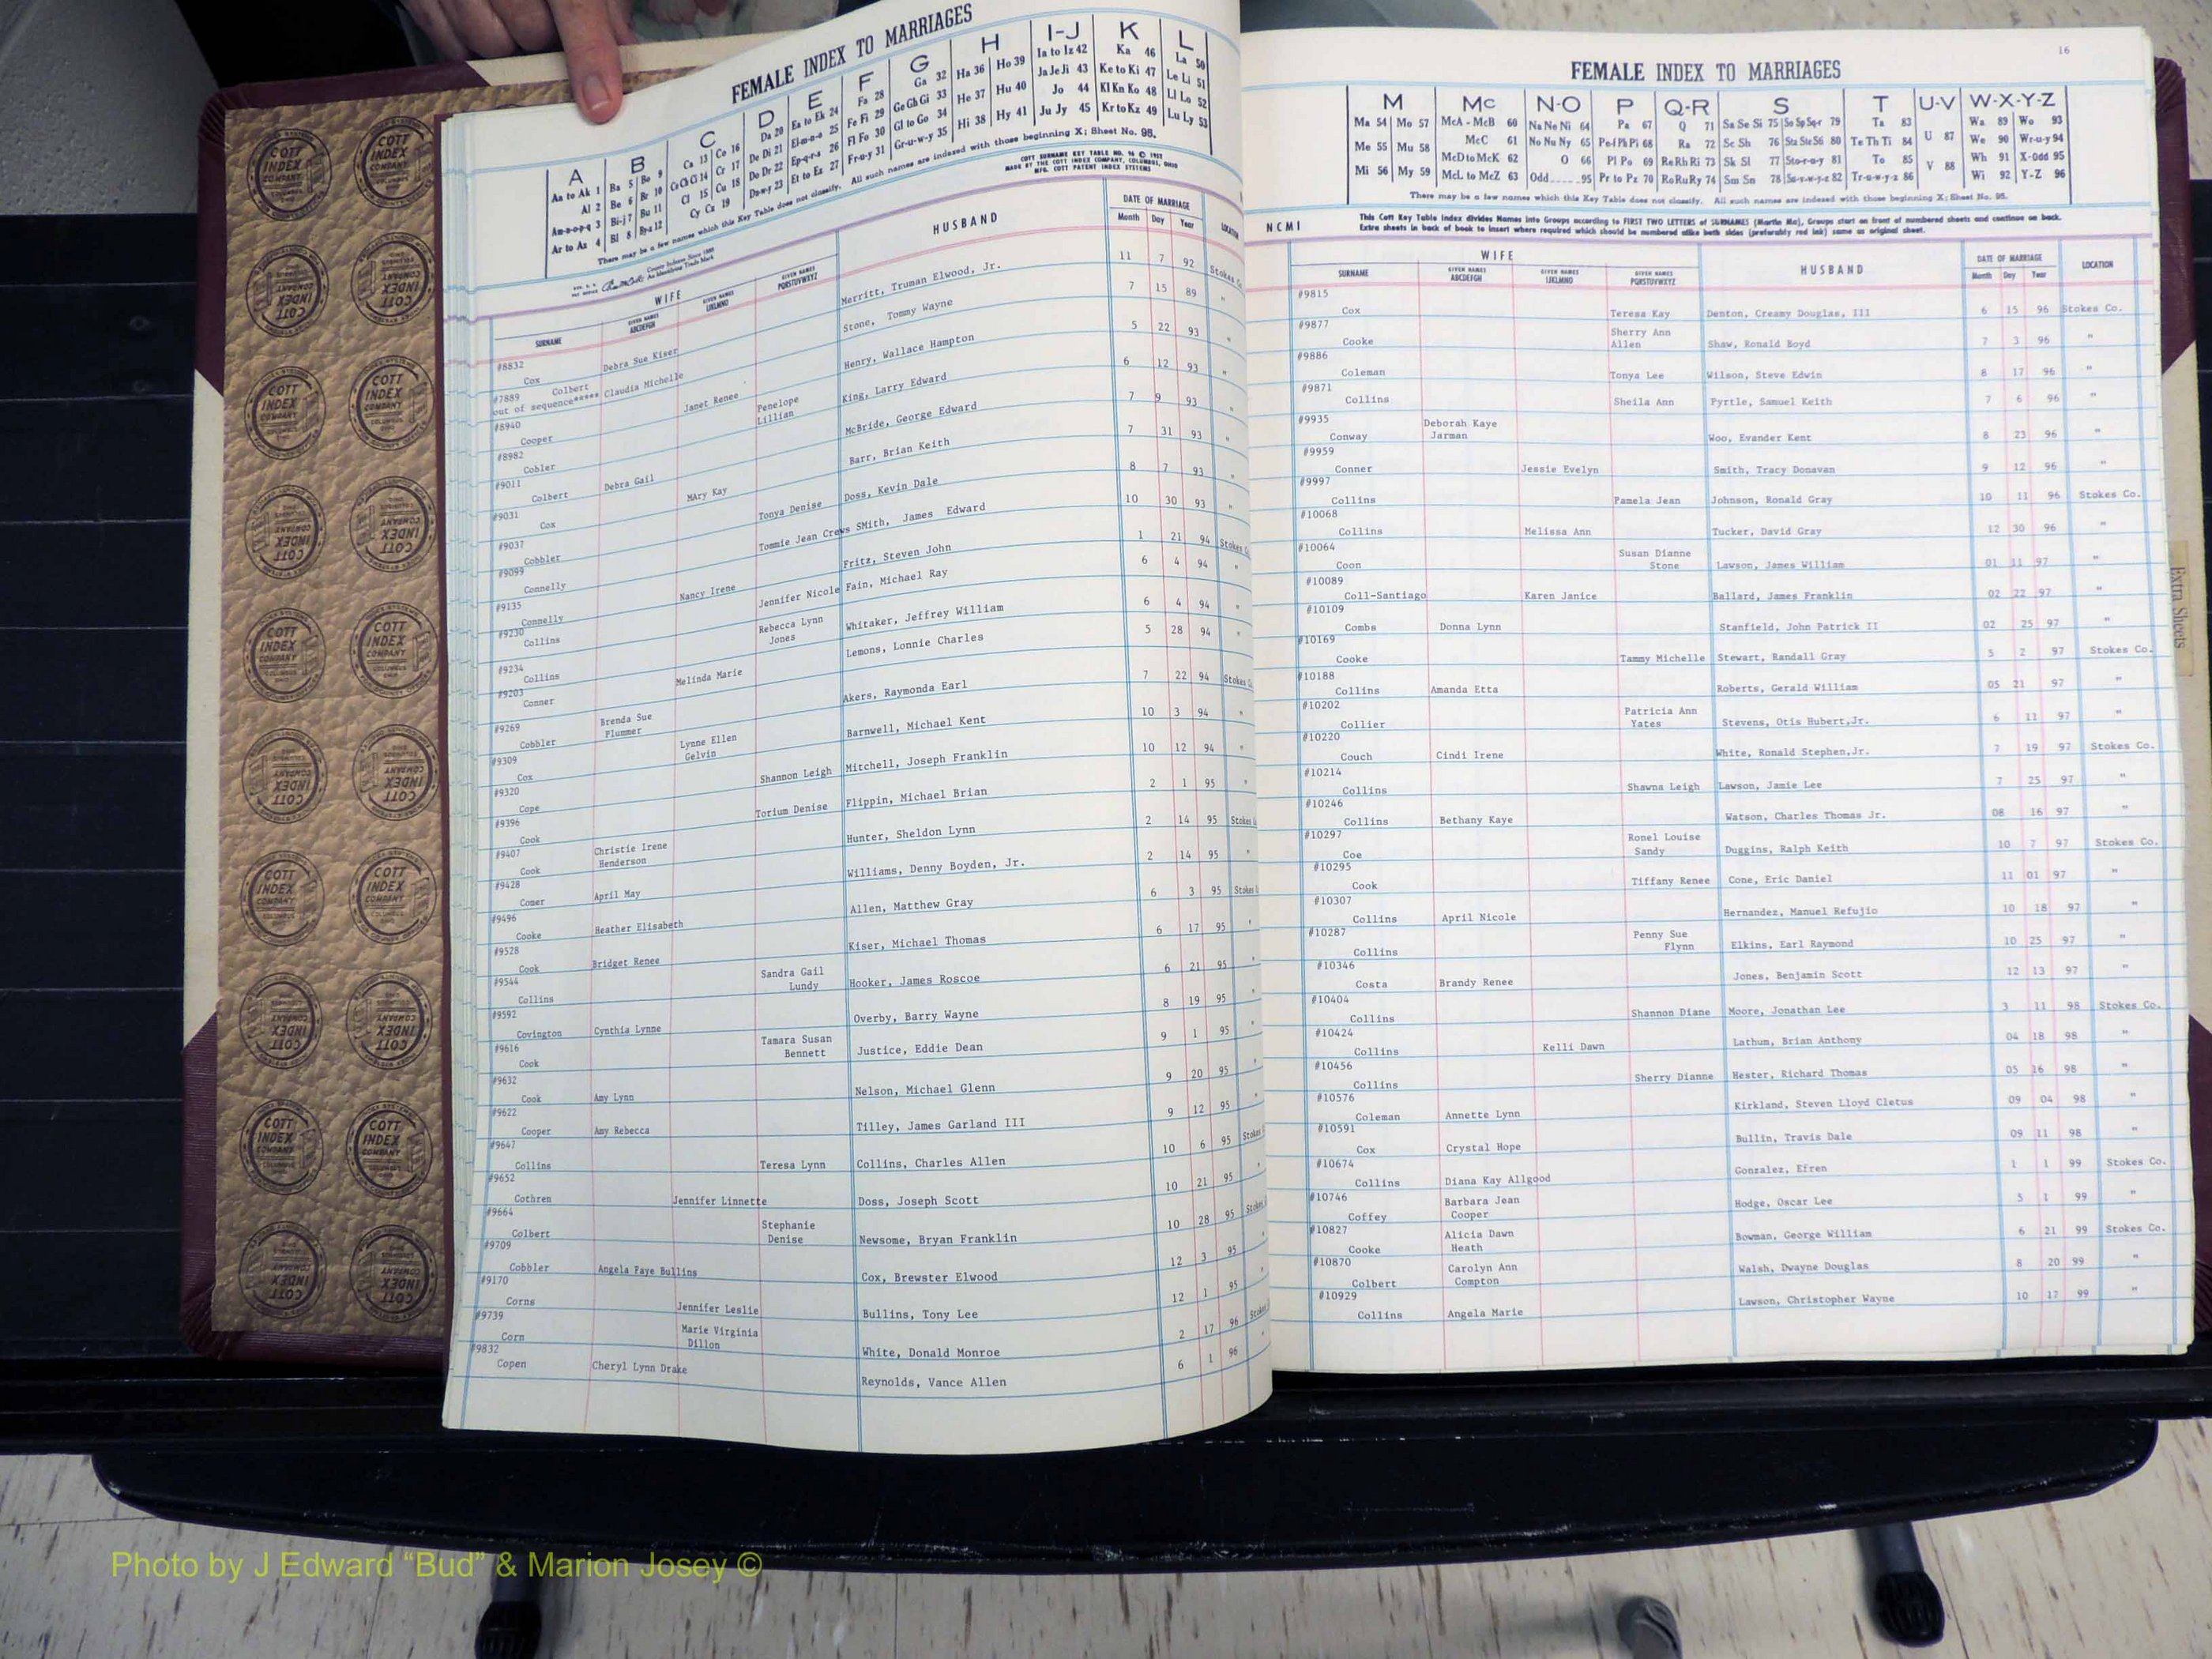 FEMALE INDEX TO MARRIAGES
A B C D E F G H I-J K L
Aa to Ak 1 Ba 5 Bo 9 Ca 13 Co 16 Da 20 Ea to Ek 24 Fa 28 Ga 32 Ha 36 Ho 39 Ia to Iz 42 Ka 46 La 50
Al 2 Be 6 Br 10 Ce Ch Ci 14 Cr 17 De Di 21 El-m-n-o 25 Fe Fi 29 Ge Gh Gi 33 He 37 Hu 40 Ja Je Ji 43 Ke to Ki 47 Le Li 51
Am-n-o-p-q 3 Bi-j 7 Bu 11 Cl 15 Cu 18 Do Dr 22 Ep-q-r-s 26 Fl Fo 30 Gl to Go 34 Hi 38 Hy 41 Jo 44 Kl Kn Ko 48 Ll Lo 52
Ar to Az 4 Bl 8 Bya 12 Cy Cz 19 Du-w-y 23 Et to Ez 27 Fr-u-y 31 Gr-u-w-y 35 Ju Jy 45 Kr to Kz 49 Lu Ly 53
There may be a few names which this Key Table does not classify. All such names are indexed with those beginning X; Sheet No. 95.
COTT SURNAME KEY TABLE NO. 96 © 1952
MADE BY THE COTT INDEX COMPANY, COLUMBUS, OHIO
MFG. COTT PATENT INDEX SYSTEMS
WIFE HUSBAND DATE OF MARRIAGE LOCATION
SURNAME GIVEN NAMES ABCDEFGH GIVEN NAMES IJKLMNO GIVEN NAMES PQRSTUVWXYZ Month Day Year
#8832
Cox Debra Sue Kiser Merritt, Truman Elwood, Jr. 11 7 92 Stokes C
#7889 Colbert
out of sequence***** Claudia Michelle Stone, Tommy Wayne 7 15 89 "
#8940
Cooper Janet Renee Henry, Wallace Hampton 5 22 93 "
#8982
Cobler Penelope Lillian King, Larry Edward 6 12 93 "
#9011
Colbert Debra Gail McBride, George Edward 7 9 93 "
#9031
Cox MAry Kay Barr, Brian Keith 7 31 93 "
#9037
Cobbler Tonya Denise Doss, Kevin Dale 8 7 93 "
#9099
Connelly Tommie Jean Crews SMith, James Edward 10 30 93 "
#9135
Connelly Nancy Irene Fritz, Steven John 1 21 94 Stokes C
#9230
Collins Jennifer Nicole Fain, Michael Ray 6 4 94 "
#9234
Collins Rebecca Lynn Jones Whitaker, Jeffrey William 6 4 94 "
#9203
Conner Melinda Marie Lemons, Lonnie Charles 5 28 94 "
#9269
Cobbler Brenda Sue Plummer Akers, Raymonda Earl 7 22 94 Stokes C
#9309
Cox Lynne Ellen Gelvin Barnwell, Michael Kent 10 3 94 "
#9320
Cope Shannon Leigh Mitchell, Joseph Franklin 10 12 94 "
#9396
Cook Torium Denise Flippin, Michael Brian 2 1 95 "
#9407
Cook Christie Irene Henderson Hunter, Sheldon Lynn 2 14 95 Stokes C
#9428
Comer April May Williams, Denny Boyden, Jr. 2 14 95 "
#9496
Cooke Heather Elisabeth Allen, Matthew Gray 6 3 95 Stokes C
#9528
Cook Bridget Renee Kiser, Michael Thomas 6 17 95 "
#9544
Collins Sandra Gail Lundy Hooker, James Roscoe 6 21 95 "
#9592
Covington Cynthia Lynne Overby, Barry Wayne 8 19 95 "
#9616
Cook Tamara Susan Bennett Justice, Eddie Dean 9 1 95 "
#9632
Cook Amy Lynn Nelson, Michael Glenn 9 20 95 "
#9622
Cooper Amy Rebecca Tilley, James Garland III 9 12 95 "
#9647
Collins Teresa Lynn Collins, Charles Allen 10 6 95 Stokes
#9652
Cothren Jennifer Linnette Doss, Joseph Scott 10 21 95 "
#9664
Colbert Stephanie Denise Newsome, Bryan Franklin 10 28 95 Stokes
#9709
Cobbler Angela Faye Bullins Cox, Brewster Elwood 12 3 95 "
#9170
Corns Jennifer Leslie Bullins, Tony Lee 12 1 95 "
#9739
Corn Marie Virginia Dillon White, Donald Monroe 2 17 96 Stokes
#9832
Copen Cheryl Lynn Drake Reynolds, Vance Allen 6 1 96 "
16
FEMALE INDEX TO MARRIAGES
M Mc N-O P Q-R S T U-V W-X-Y-Z
Ma 54 Mo 57 McA - McB 60 Na Ne Ni 64 Pa 67 Q 71 Sa Se Si 75 So Sp Sq-r 79 Ta 83 U 87 Wa 89 Wo 93
Me 55 Mu 58 McC 61 No Nu Ny 65 Pe Pf Ph Pi 68 Ra 72 Sc Sh 76 Sta Ste S6 80 Te Th Ti 84 V 88 We 90 Wr-u-y 94
Mi 56 My 59 McD to McK 62 O 66 Pl Po 69 Re Rh Ri 73 Sk Sl 77 Sto-r-u-y 81 To 85 Wh 91 X-Odd 95
McL to McZ 63 Odd.....95 Pr to Pz 70 Ro Ru Ry 74 Sm Sn 78 Su-v-w-y-z 82 Tr-u-w-y-z 86 Wi 92 Y-Z 96
There may be a few names which this Key Table does not classify. All such names are indexed with those beginning X; Sheet No. 95.
NCMI
This Cott Key Table Index divides Names into Groups according to FIRST TWO LETTERS of SURNAMES (Martin Ma), Groups start on front of numbered sheets and continue on back.
Extra sheets in back of book to insert where required which should be numbered alike both sides (preferably red ink) same as original sheet.
WIFE HUSBAND DATE OF MARRIAGE LOCATION
SURNAME GIVEN NAMES ABCDEFGH GIVEN NAMES IJKLMNO GIVEN NAMES PQRSTUVWXYZ Month Day Year
#9815
Cox Teresa Kay Denton, Creamy Douglas, III 6 15 96 Stokes Co.
#9877
Cooke Sherry Ann Allen Shaw, Ronald Boyd 7 3 96 "
#9886
Coleman Tonya Lee Wilson, Steve Edwin 8 17 96 "
#9871
Collins Sheila Ann Pyrtle, Samuel Keith 7 6 96 "
#9935
Conway Deborah Kaye Jarman Woo, Evander Kent 8 23 96 "
#9959
Conner Jessie Evelyn Smith, Tracy Donavan 9 12 96 "
#9997
Collins Pamela Jean Johnson, Ronald Gray 10 11 96 Stokes Co.
#10068
Collins Melissa Ann Tucker, David Gray 12 30 96 "
#10064
Coon Susan Dianne Stone Lawson, James William 01 11 97 "
#10089
Coll-Santiago Karen Janice Ballard, James Franklin 02 22 97 "
#10109
Combs Donna Lynn Stanfield, John Patrick II 02 25 97 "
#10169
Cooke Tammy Michelle Stewart, Randall Gray 5 2 97 Stokes Co.
#10188
Collins Amanda Etta Roberts, Gerald William 05 21 97 "
#10202
Collier Patricia Ann Yates Stevens, Otis Hubert,Jr. 6 11 97 "
#10220
Couch Cindi Irene White, Ronald Stephen,Jr. 7 19 97 Stokes Co.
#10214
Collins Shawna Leigh Lawson, Jamie Lee 7 25 97 "
#10246
Collins Bethany Kaye Watson, Charles Thomas Jr. 08 16 97 "
#10297
Coe Ronel Louise Sandy Duggins, Ralph Keith 10 7 97 Stokes Co.
#10295
Cook Tiffany Renee Cone, Eric Daniel 11 01 97 "
#10307
Collins April Nicole Hernandez, Manuel Refujio 10 18 97 "
#10287
Collins Penny Sue Flynn Elkins, Earl Raymond 10 25 97 "
#10346
Costa Brandy Renee Jones, Benjamin Scott 12 13 97 "
#10404
Collins Shannon Diane Moore, Jonathan Lee 3 11 98 Stokes Co.
#10424
Collins Kelli Dawn Lathum, Brian Anthony 04 18 98 "
#10456
Collins Sherry Dianne Hester, Richard Thomas 05 16 98 "
#10576
Coleman Annette Lynn Kirkland, Steven Lloyd Cletus 09 04 98 "
#10591
Cox Crystal Hope Bullin, Travis Dale 09 11 98 "
#10674
Collins Diana Kay Allgood Gonzalez, Efren 1 1 99 Stokes Co.
#10746
Coffey Barbara Jean Cooper Hodge, Oscar Lee 5 1 99 "
#10827
Cooke Alicia Dawn Heath Bowman, George William 6 21 99 Stokes Co.
#10870
Colbert Carolyn Ann Compton Walsh, Dwayne Douglas 8 20 99 "
#10929
Collins Angela Marie Lawson, Christopher Wayne 10 17 99 "
Extra Sheets
COTT INDEX COMPANY COLUMBUS OHIO
Photo by J Edward “Bud” & Marion Josey ©